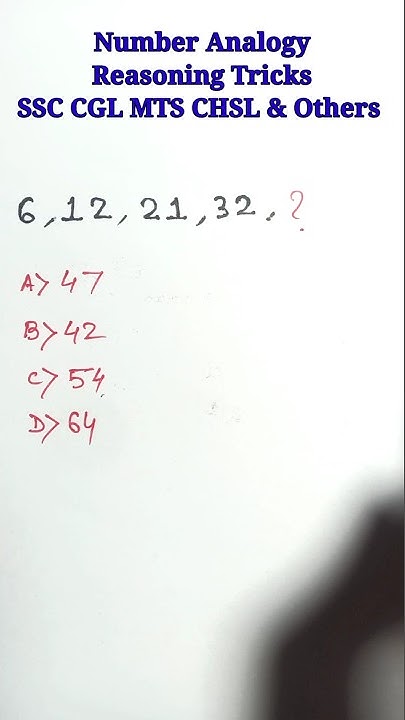 Number Analogy
Reasoning Tricks
SSC CGL MTS CHSL & Others
6, 12, 21, 32, ?
A> 47
B> 42
C> 54
D> 64